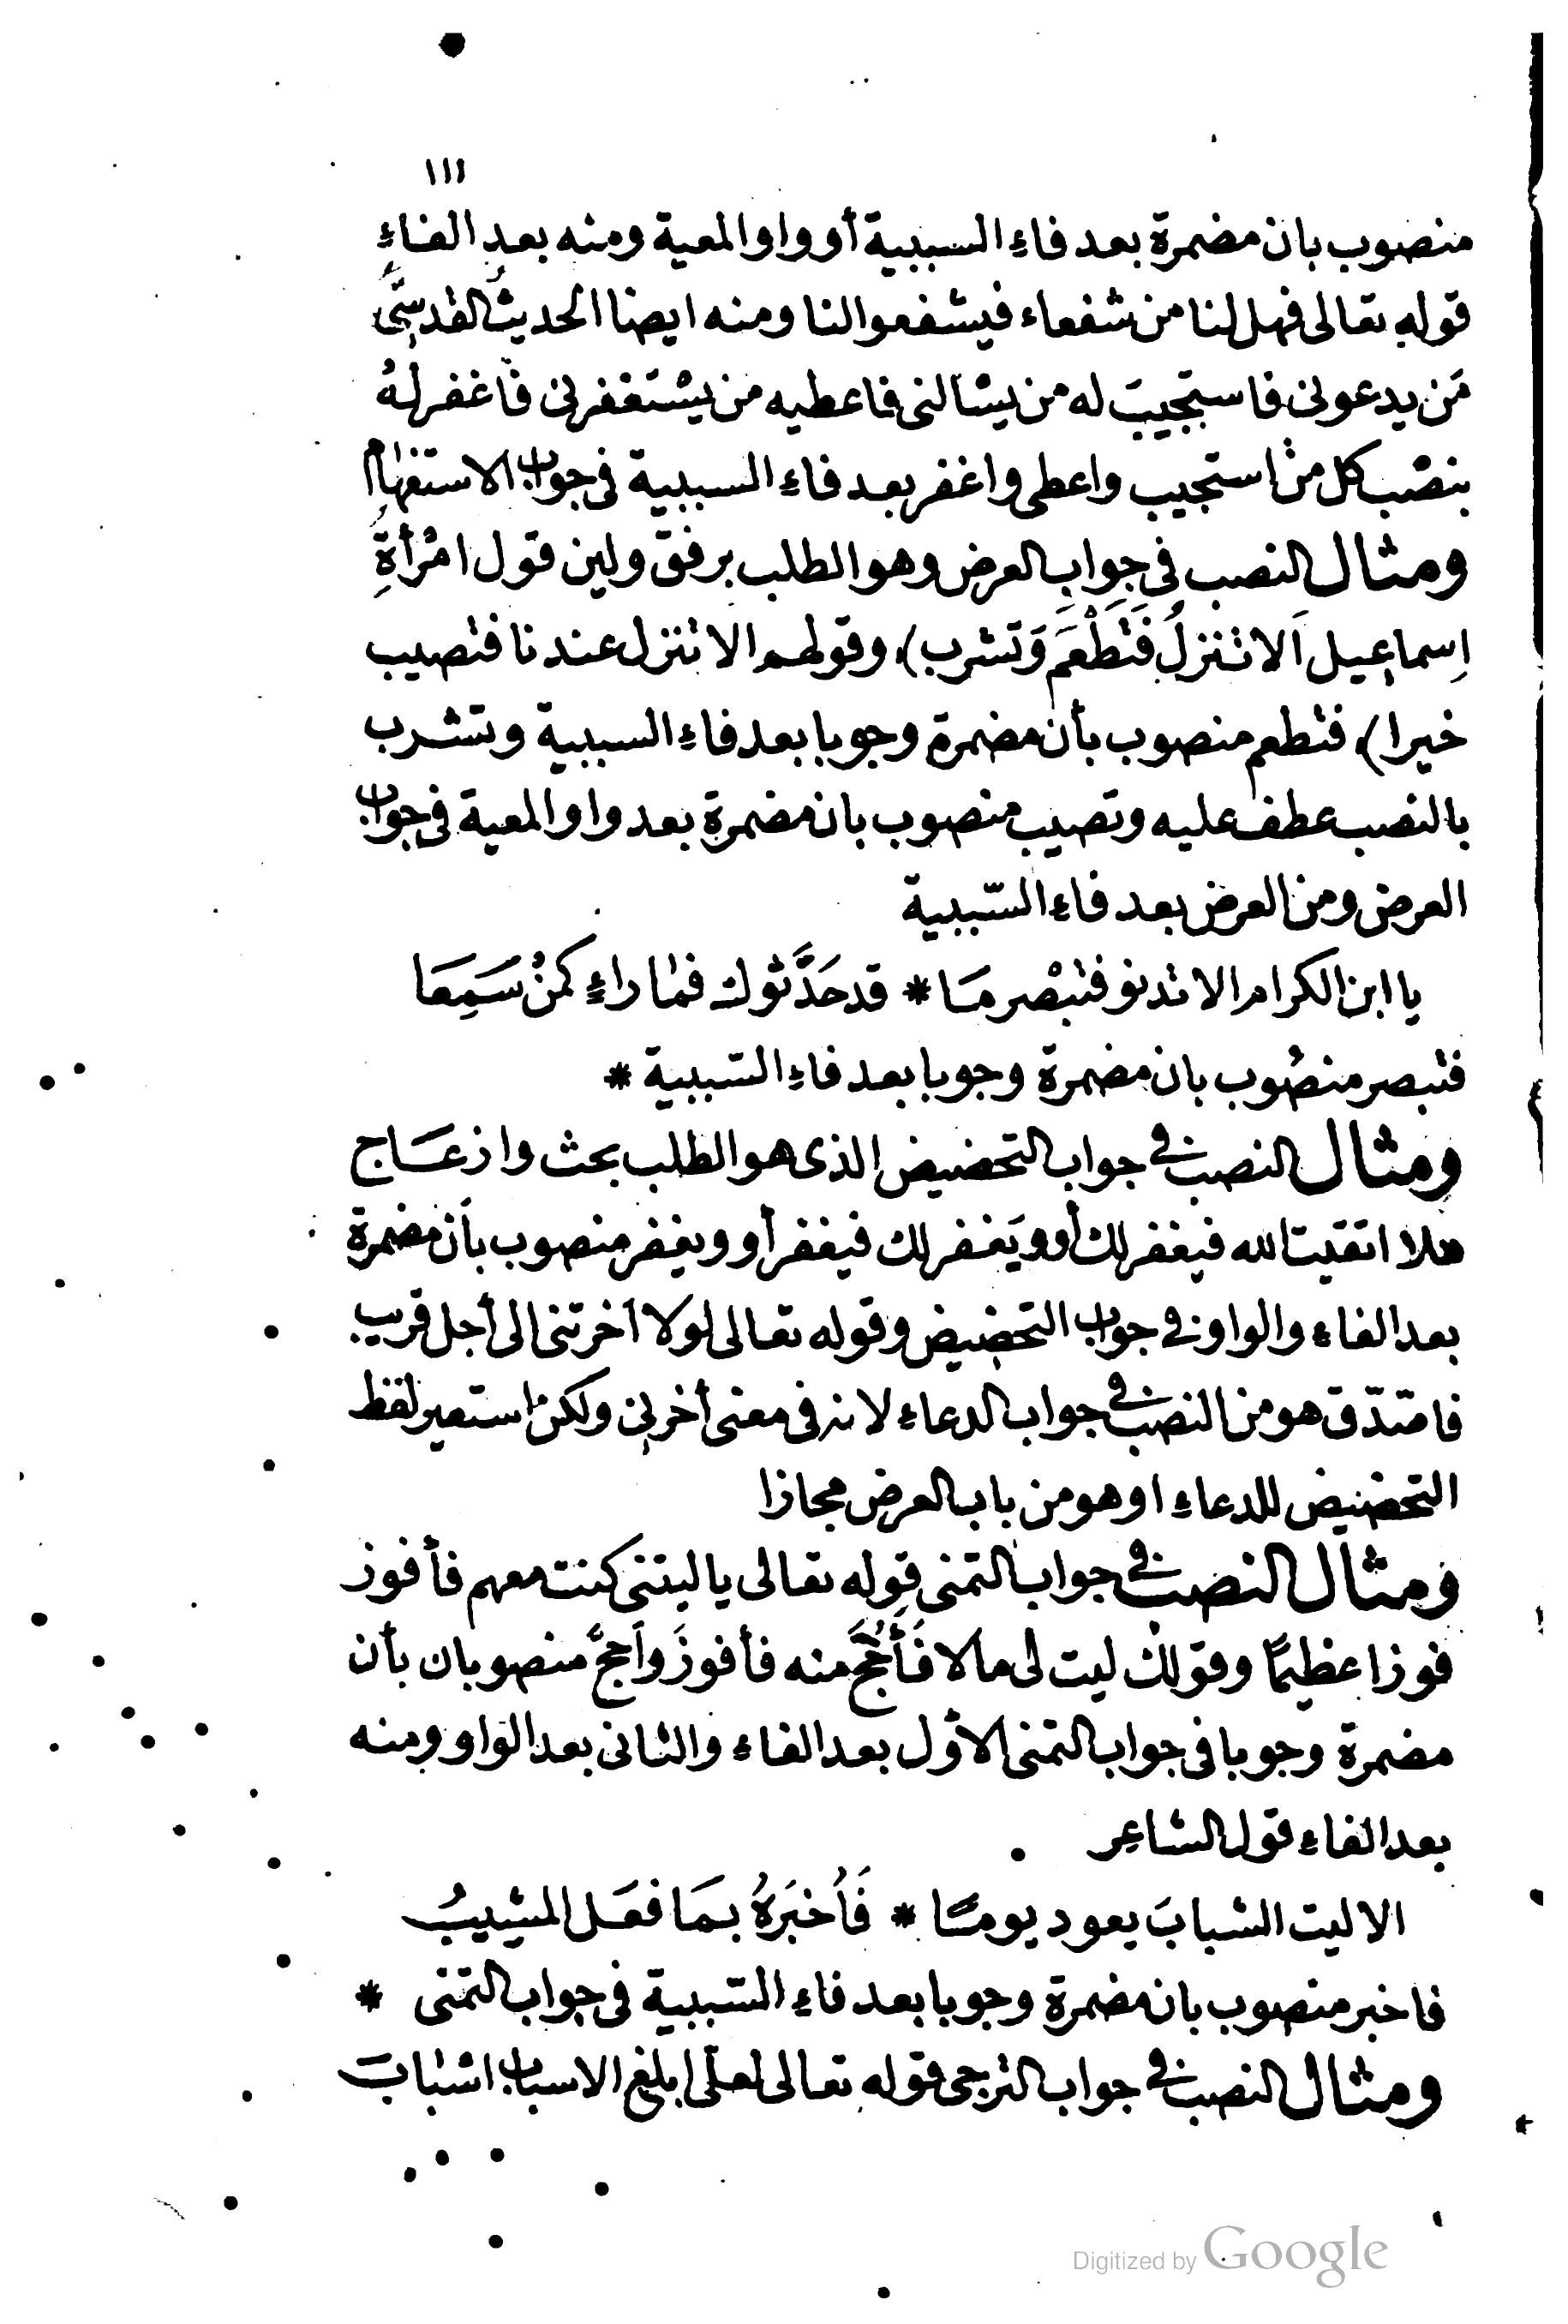 ١١١
منصوب بان مضمرة بعد فاءِ السببية أو واو المعية ومنه بعد الفاءِ
قوله تعالى فهل لنا من شفعاء فيشفعوا لنا ومنه ايضا الحديثُ القدسىُّ
مَن يدعونى فاستجيبَ له من يسْالنى فاعطيه من يسْتغفرنى فاغفر لهُ
بنصْب كل من استجيب واعطى واغفر بعد فاءِ السببية فى جواب الاستفهام
ومثال النصب فى جواب العرض وهو الطلب برفق ولين قول امْرأةِ
اِسماعيل اَلا تنزلُ فَتَطْعَمَ وَتشرب) وقولهم الا تنزل عندنا فتصيب
خيرا) فتطعم منصوب بأن مضمرة وجوبا بعد فاءِ السببية وتشرب
بالنصب عطف عليه وتصيب منصوب بان مضمرة بعد واو المعية فى جواب
العرض ومن العرض بعد فاء السّببية
يا ابن الكرام الا تدنو فتبْصر مَا * قد حَدَّثوك فما راءٍ كمنْ سَمِعَا
فتبصر منصُوب بان مضمرة وجوبا بعد فاءِ السّببية *
ومثال النصب فى جواب التحضيض الذى هو الطلب بحث وازعَاج
هلا اتقيت الله فيغفر لك أو ويَغفر لك فيغفر أو ويغفر منصوب بأن مضمرة
بعد الفاء والواو فى جواب التحضيض وقوله تعالى لولا أخرتنى الى أجل قريب
فاصّدّق هو من النصب فى جواب الدعاءِ لانه فى معنى أخرنى ولكن استعير لفظ
التحضيض للدعاءِ او هو من باب العرض مجازا
ومثال النصب فى جواب التمنى قوله تعالى يا ليتنى كنت معهم فأفوز
فوزا عظيمًا وقولك ليت لى مالا فَأَحُجَّ منه فأفوزَ وأحجَّ منصوبان بأن
مضمرة وجوبا فى جواب التمنى الأول بعد الفاء والثانى بعد الواو ومنه
بعد الفاءِ قول الشاعِر
الا ليت الشبابَ يعود يومًا * فَأُخبَرهُ بمَا فعَل المشيبُ
فاخبر منصوب بان مضمرة وجوبا بعد فاءِ السّببية فى جواب التمنى *
ومثال النصب فى جواب الترجى قوله تعالى لعلّى ابلغ الاسباب اسْبابَ
Digitized by Google